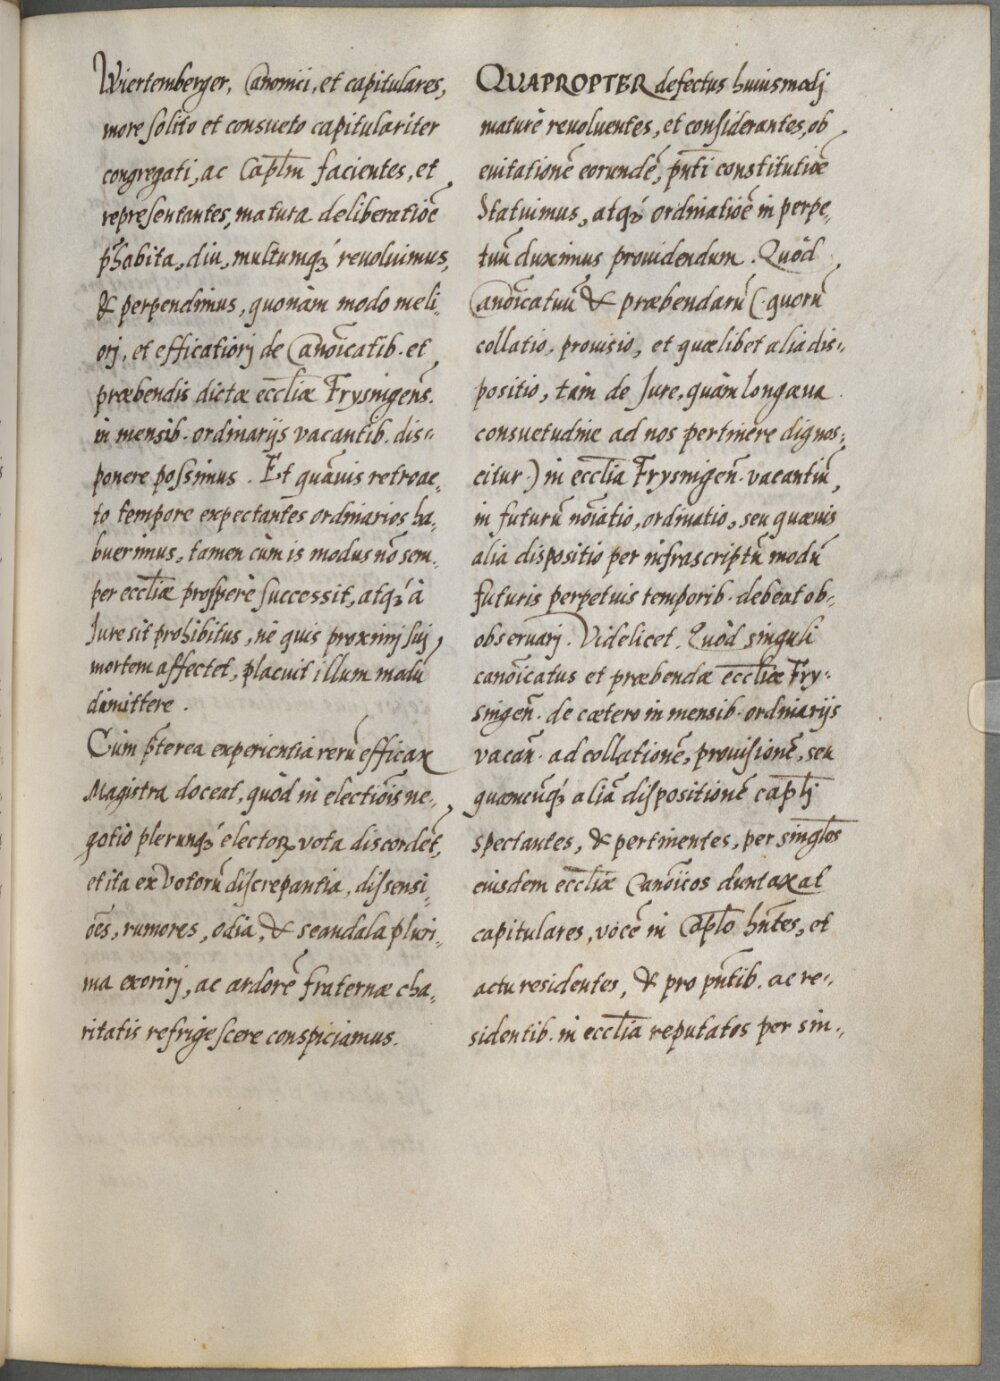 Wiertemberger, Canonici, et capitulares,
more solito et consueto capitulariter
congregati, ac Caplm̄ facientes, et
representantes, matura deliberatiōe
p̄habita, diu, multumqꝫ revoluimus,
& perpendimus, quonàm modo meli:
orj, et efficatiorj de Canōicatib. et
præbendis dictæ eccl̄iæ Frysingen̄s.
in mensib. ordinarijs vacantib. dis:
ponere possimus. Et quāuis retroac:
to tempore expectantes ordinarios ha:
buerimus, tamen cùm is modus nō sem:
per eccl̄iæ prosperè successit, atqꝫ à
Jure sit prohibitus, nè quis proximj suj
mortem affectet, placuit illum modū
dimittere.
Cùm p̄terea experientia rerū efficax
Magistra doceat, quòd in electiōis ne:
gotio plerunqꝫ electoꝝ vota discordēt,
et ita ex Votorū discrepantia, dissensi:
ōes, rumores, odia, & scandala pluri:
ma exorirj, ac ardorē fraternæ cha:
ritatis refrigescere conspiciamus.
QUAPROPTER defectus huiusmodj
maturè reuoluentes, et considerantes, ob
euitationē eorundē, pn̄ti constitutiōe
Statuimus, atqꝫ ordinatiōe in perpe:
tuū duximus prouidendum. Quòd
Canōicatuū & præbendarū (quorū
collatio, prouisio, et quælibet alia dis:
positio, tàm de Jure, quàm longæua
consuetudine ad nos pertinere dignos:
citur) in eccl̄ia Frysingen̄. vacantiū,
in futurū nōiatio, ordinatio, seu quæuis
alia dispositio per infrascriptū modū
futuris perpetuis temporib. debeat ob:
obseruarj. Videlicet. Quòd singuli
canōicatus et præbendæ eccl̄iæ Fry:
singen̄. de cætero in mensib. ordinarijs
vacan̄. ad collationē, prouisionē, seu
quamcūqꝫ aliā dispositionē capl̄j
spectantes, & pertinentes, per singl̄os
eiusdem eccl̄iæ Canōicos duntaxat
capitulares, vocē in Caplo hn̄tes, et
actu residentes, & pro pn̄tib. ac re:
sidentib. in eccl̄ia reputatos per sin: